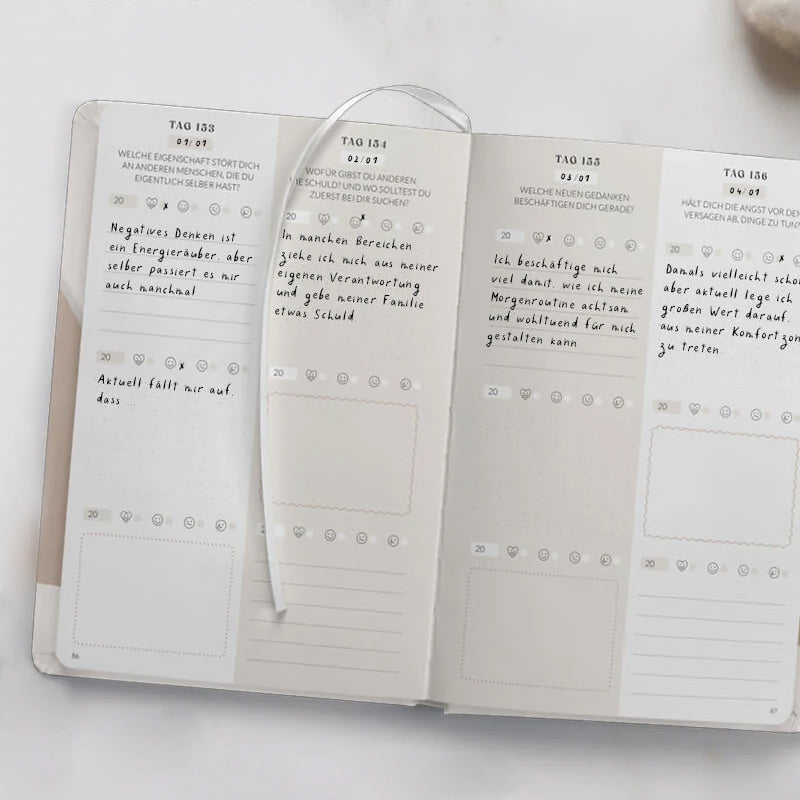 TAG 153
01/01
WELCHE EIGENSCHAFT STÖRT DICH
AN ANDEREN MENSCHEN, DIE DU
EIGENTLICH SELBER HAST?
20
Negatives Denken ist
ein Energieräuber, aber
selber passiert es mir
auch manchmal
20
Aktuell fällt mir auf,
dass ...
20
86
TAG 154
02/01
WOFÜR GIBST DU ANDEREN
DIE SCHULD? UND WO SOLLTEST DU
ZUERST BEI DIR SUCHEN?
20
In manchen Bereichen
ziehe ich mich aus meiner
eigenen Verantwortung
und gebe meiner Familie
etwas Schuld
20
TAG 155
03/01
WELCHE NEUEN GEDANKEN
BESCHÄFTIGEN DICH GERADE?
20
Ich beschäftige mich
viel damit, wie ich meine
Morgenroutine achtsam
und wohltuend für mich
gestalten kann
20
20
TAG 156
04/01
HÄLT DICH DIE ANGST VOR DEM
VERSAGEN AB, DINGE ZU TUN?
20
Damals vielleicht scho
aber aktuell lege ich
großen Wert darauf,
aus meiner Komfortzon
zu treten
20
20
87